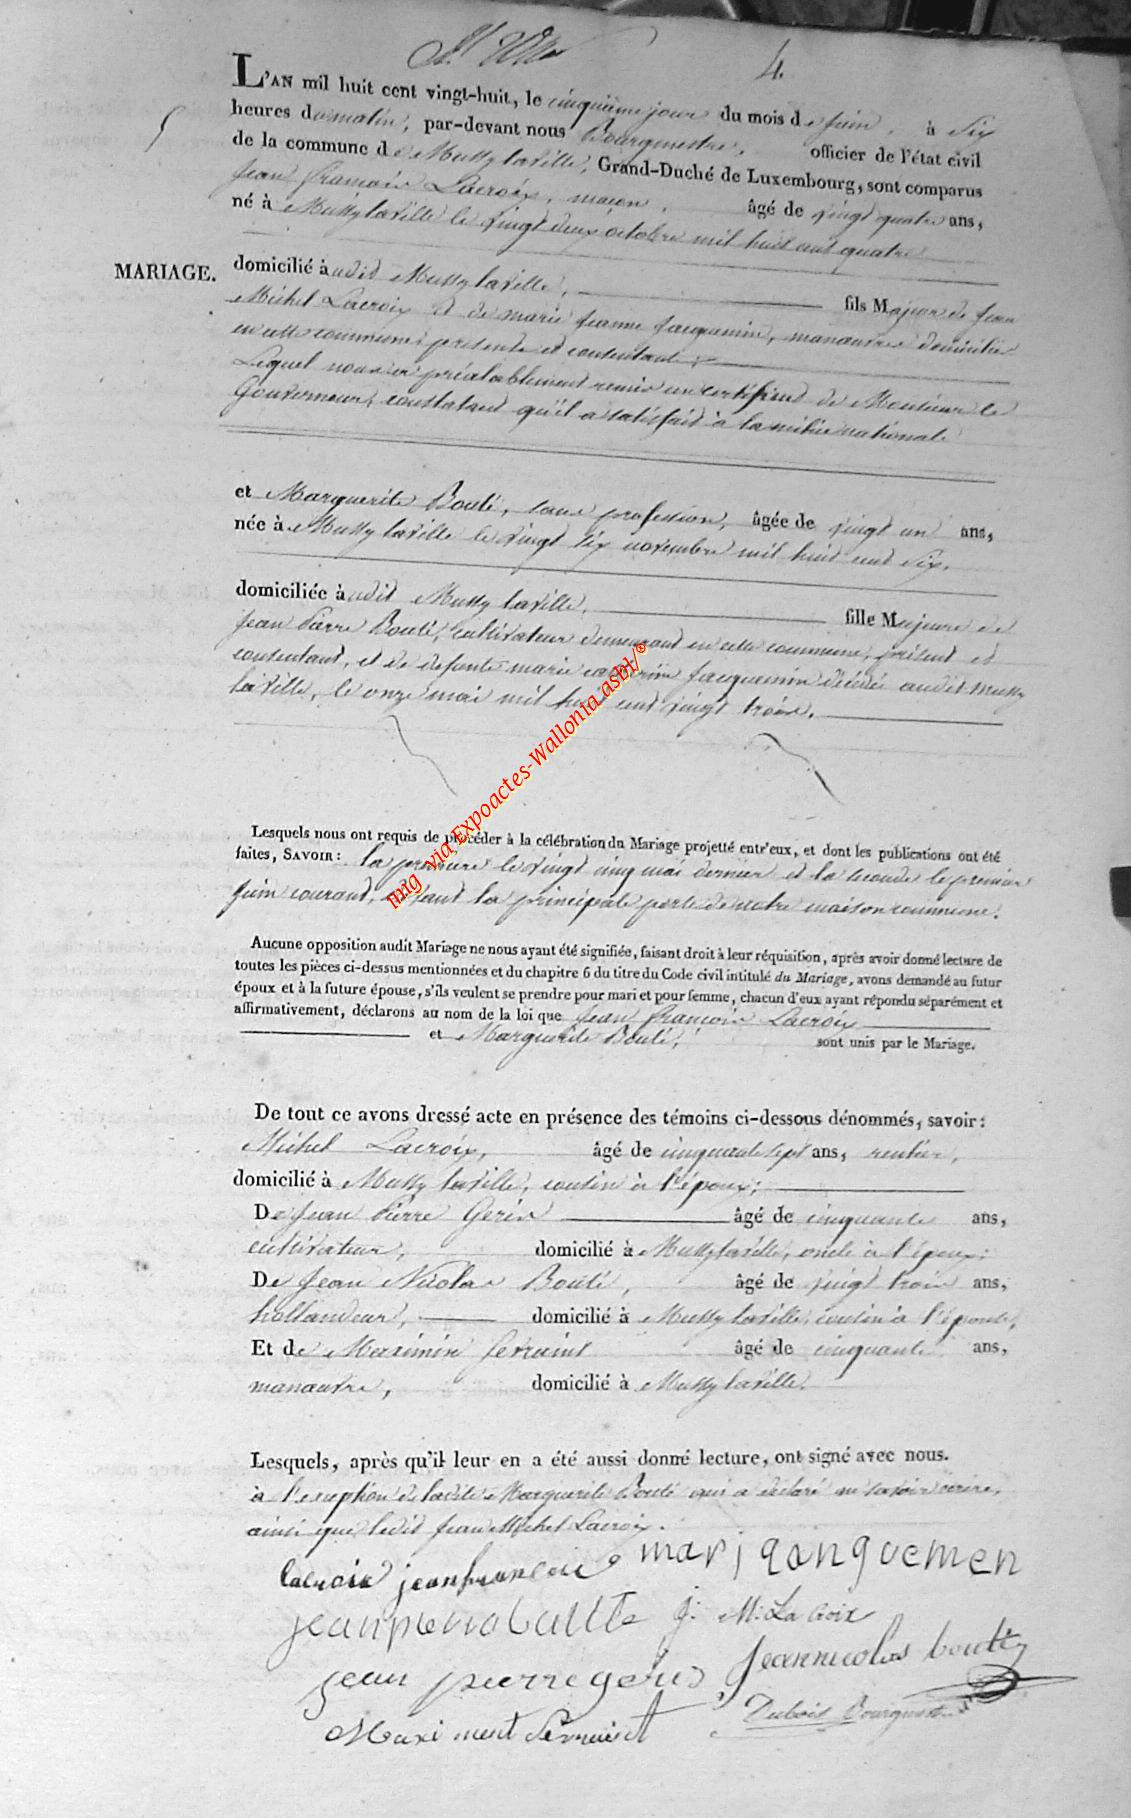 4.
L'AN mil huit cent vingt-huit, le cinquième jour du mois de juin, à six
heures du matin, par-devant nous Bourgmestre, officier de l'état civil
de la commune de Mussy laville, Grand-Duché de Luxembourg, sont comparus
Jean françois Lacroix, maçon, âgé de vingt quatre ans,
né à Mussy laville le vingt deux octobre mil huit cent quatre
MARIAGE.
domicilié à udit Mussy laville, fils Majeur de Jean
Michel Lacroix et de marie jeanne jacquemin, manœuvres domiciliés
en cette commune, présents et consentants;
Lequel nous a préalablement remis un certificat de Monsieur le
Gouverneur, constatant qu'il a satisfait à la milice nationale
et Marguerite Bouté, sans profession, âgée de vingt un ans,
née à Mussy laville le vingt six novembre mil huit cent six,
domiciliée à udit Mussy laville, fille Majeure de
Jean Pierre Bouté, cultivateur demeurant en cette commune, présent et
consentant, et de défunte marie catherine jacquemin décédée audit mussy
laville, le onze mai mil huit cent vingt trois,
Lesquels nous ont requis de procéder à la célébration du Mariage projetté entr'eux, et dont les publications ont été
faites, SAVOIR: la première le vingt cinq mai dernier et la seconde le premier
juin courant, devant la principale porte de notre maison commune.
Aucune opposition audit Mariage ne nous ayant été signifiée, faisant droit à leur réquisition, après avoir donné lecture de
toutes les pièces ci-dessus mentionnées et du chapitre 6 du titre du Code civil intitulé du Mariage, avons demandé au futur
époux et à la future épouse, s'ils veulent se prendre pour mari et pour femme, chacun d'eux ayant répondu séparément et
affirmativement, déclarons au nom de la loi que Jean françois Lacroix
et Marguerite Bouté, sont unis par le Mariage.
De tout ce avons dressé acte en présence des témoins ci-dessous dénommés, savoir:
Michel Lacroix, âgé de cinquante sept ans, rentier,
domicilié à Mussy laville, cousin à l'époux;
De Jean Pierre Gerin âgé de cinquante ans,
cultivateur, domicilié à Mussy laville, oncle à l'époux;
De Jean Nicolas Bouté, âgé de vingt trois ans,
hollandeur, domicilié à Mussy laville, cousin à l'épouse,
Et de Maximin ferraint âgé de cinquante ans,
manœuvre, domicilié à Mussy laville.
Lesquels, après qu'il leur en a été aussi donné lecture, ont signé avec nous.
à l'exception de ladite Marguerite Bouté qui a déclaré ne savoir écrire,
ainsi que ledit Jean Michel Lacroix.
lacroix jeanfrancois mari qanguemen
j. M. La Croix
jean pierre geris jeannicolas boutez
Dubois Bourgmestre
img via Expoactes-Wallonia asbl/®